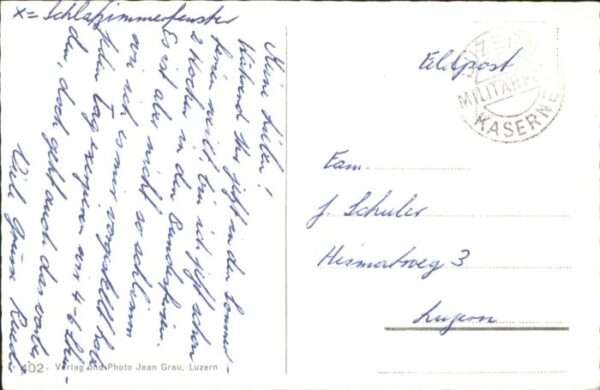 x = Schlafzimmerfenster
Meine Lieben!
Während Ihr jetzt in den Sommer-
ferien weilt bin ich jetzt schon
2 Wochen in den
Es ist aber nicht so schlimm
wie ich es mir vorgestellt habe
Jeden Tag wir 4-6 Stun-
den, doch geht auch das vorbei
Viele Grüsse Ruedi
Feldpost
MILITÄR
KASERNE
Fam.
J. Schuler
Heimatweg 3
Luzern
402 - Verlag und Photo Jean Grau, Luzern